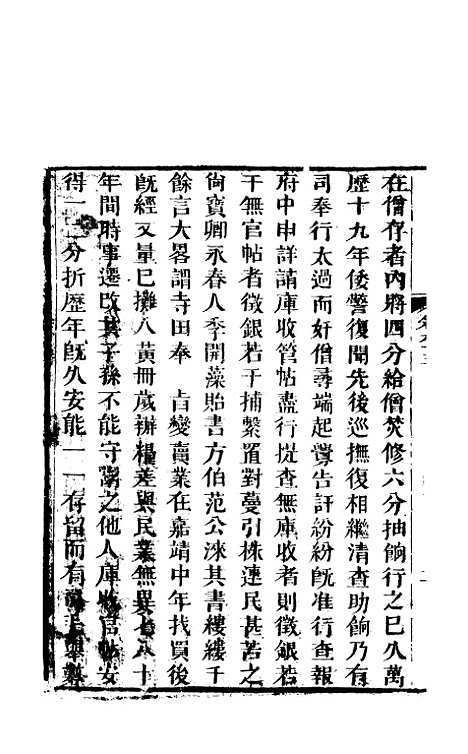 在僧存者內將四分給僧焚修六分抽餉行之已久萬
歷十九年倭警復聞先後巡撫復相繼清查助餉乃有
司奉行太過而奸僧尋端起釁告訐紛紛既准行查報
府中申詳請庫收管帖盡行提查無庫收者則徵銀若
干無官帖者徵銀若干捕繫置對蔓引株連民甚苦之
尚寶卿永春人李開藻貽書方伯范公淶其書縷縷千
餘言大畧謂寺田奉 旨變賣業在嘉靖中年找買後
既經丈量已攤入黃冊歲辦糧差與民業無異七八十
年間時事遷改其子孫不能守鬻之他人庫收官帖
得一二分折歷年既久安能一一存留而有